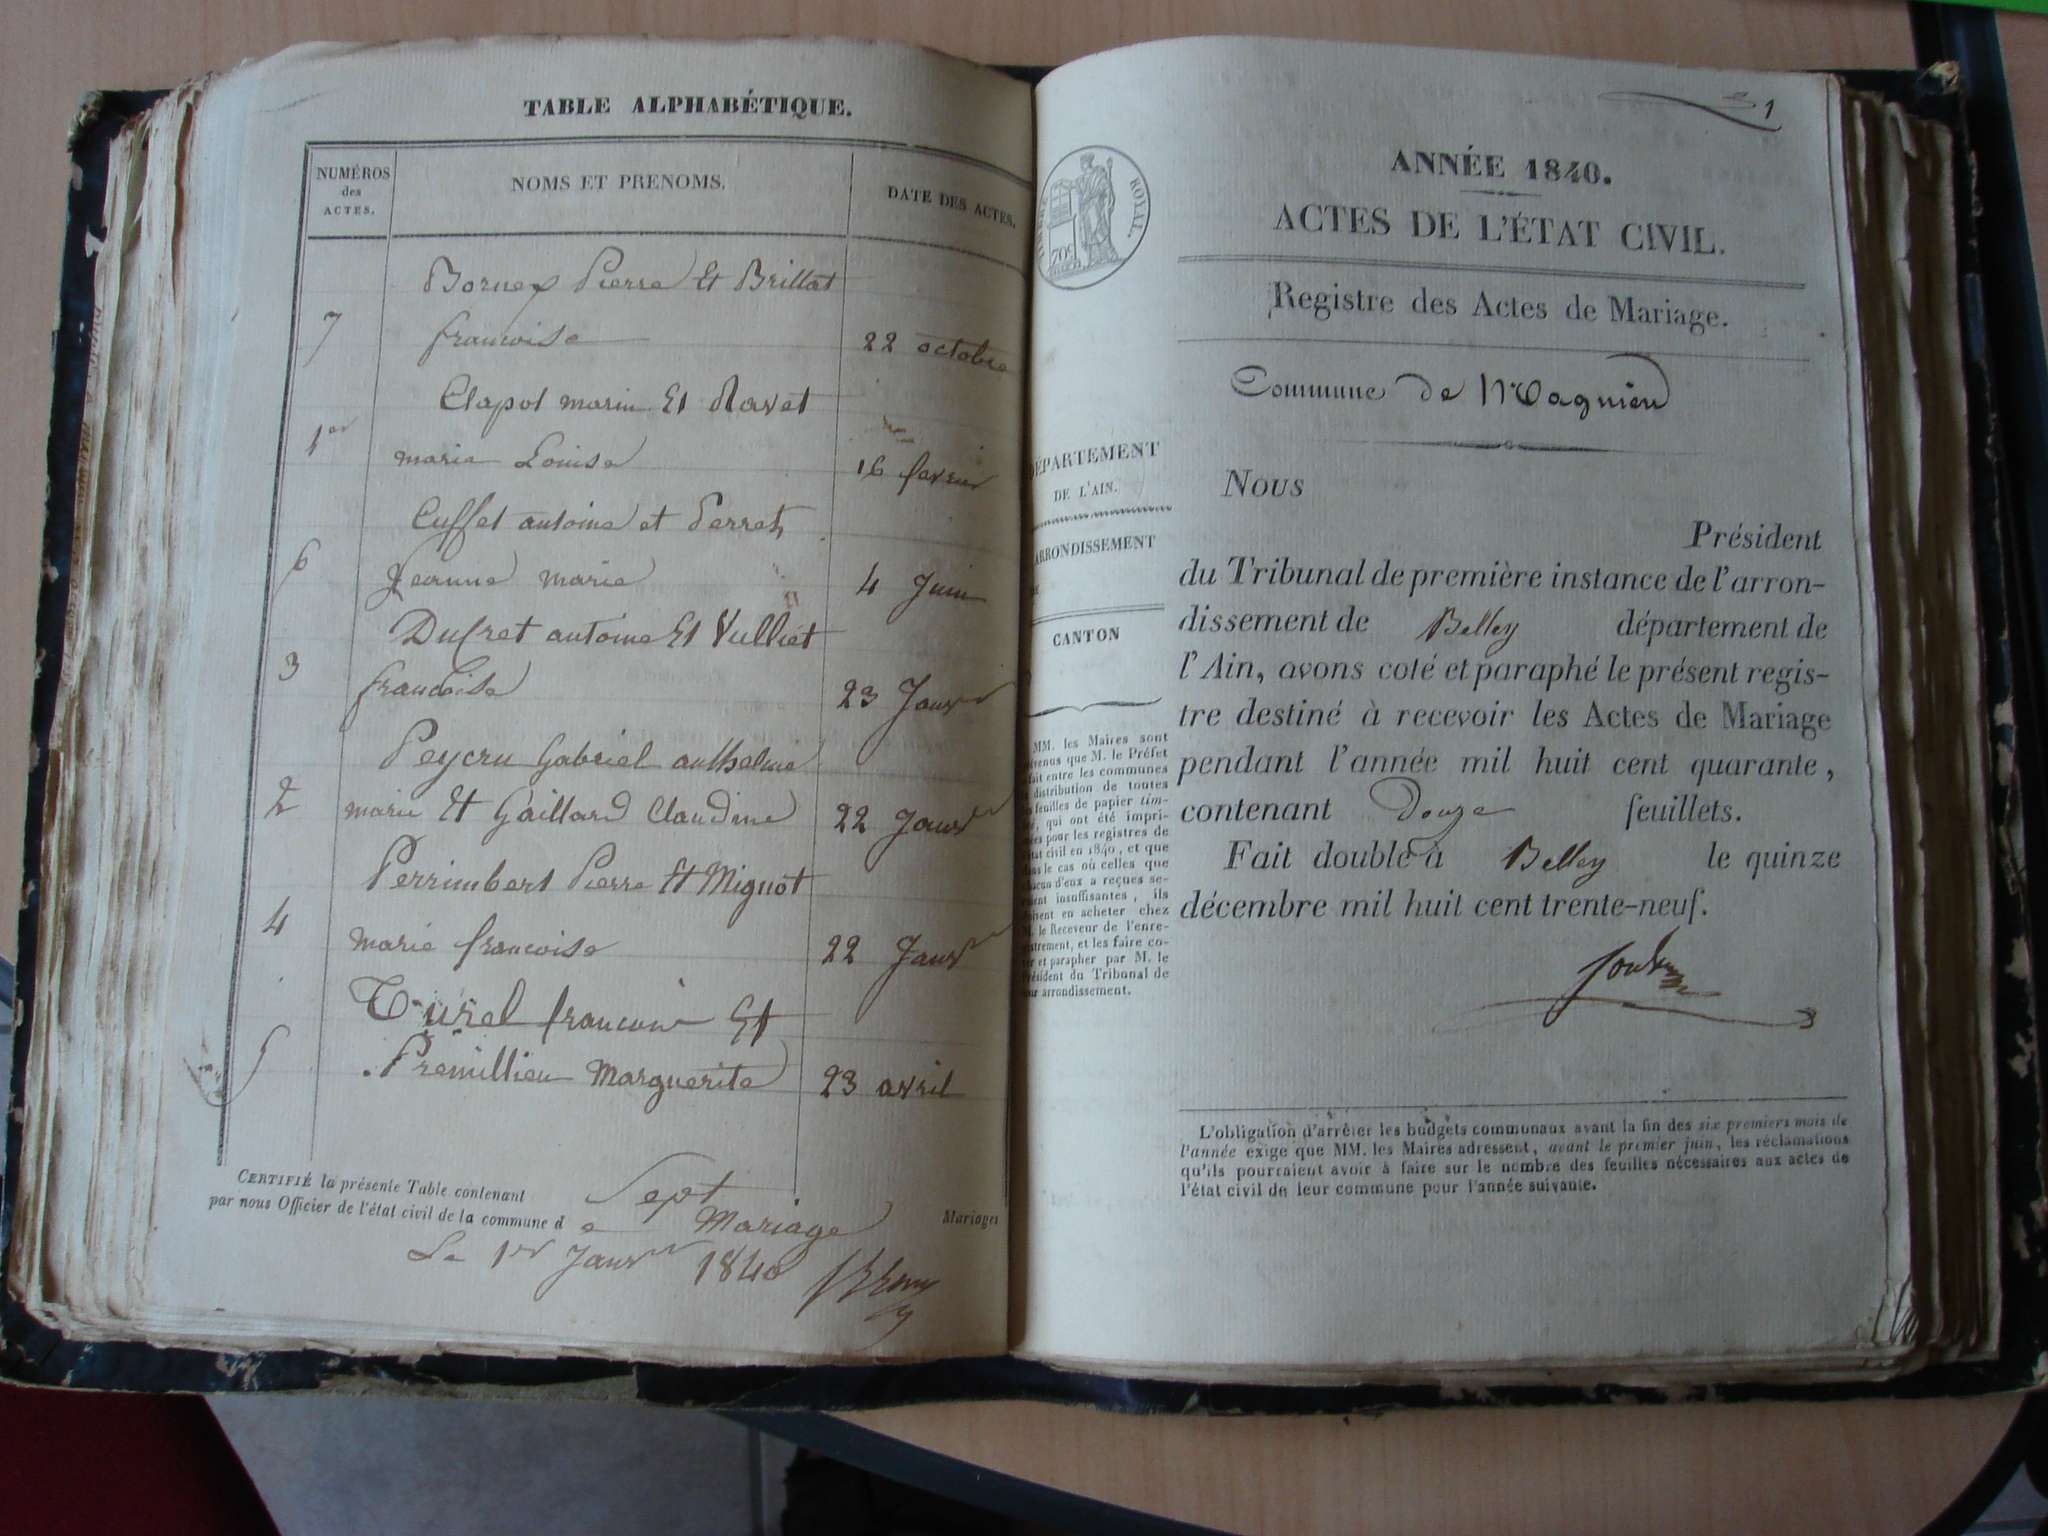 TABLE ALPHABÉTIQUE.
NUMÉROS
des
ACTES.
NOMS ET PRENOMS.
DATE DES ACTES.
Bornex Pierre Et Brillat
7 francoise 22 octobre
Clapot marin Et Ravet
1er marie Louise 16 fevrier
Cuffet antoine et Perret
6 Jeanne marie 4 Juin
Dufret antoine Et Vulliet
3 francoise 23 Janvr
Peycru Gabriel anthelme
2 marie Et Gaillard Claudine 22 Janvr
Perrimbert Pierre Et Mignot
4 marie francoise 22 Janvr
Turel francois Et
5 Premillieu Marguerite 23 avril
CERTIFIÉ la présente Table contenant Sept Mariages
par nous Officier de l'état civil de la commune d e Mariage
Le 1er Janvr 1840
1
TIMBRE ROYAL.
70c
ANNÉE 1840.
ACTES DE L'ÉTAT CIVIL.
Registre des Actes de Mariage.
Commune de Magnieu
DÉPARTEMENT
DE L'AIN.
ARRONDISSEMENT
CANTON
MM. les Maires sont
prévenus que M. le Préfet
fait entre les communes
la distribution de toutes
les feuilles de papier tim-
bré, qui ont été impri-
mées pour les registres de
l'état civil en 1840, et que
dans le cas où celles que
chacun d'eux a reçues se-
raient insuffisantes, ils
doivent en acheter chez
M. le Receveur de l'enre-
gistrement, et les faire co-
ter et parapher par M. le
Président du Tribunal de
leur arrondissement.
Nous
Président
du Tribunal de première instance de l'arron-
dissement de Belley département de
l'Ain, avons coté et paraphé le présent regis-
tre destiné à recevoir les Actes de Mariage
pendant l'année mil huit cent quarante,
contenant Douze feuillets.
Fait double à Belley le quinze
décembre mil huit cent trente-neuf.
L'obligation d'arrêter les budgets communaux avant la fin des six premiers mois de
l'année exige que MM. les Maires adressent, avant le premier juin, les réclamations
qu'ils pourraient avoir à faire sur le nombre des feuilles nécessaires aux actes de
l'état civil de leur commune pour l'année suivante.